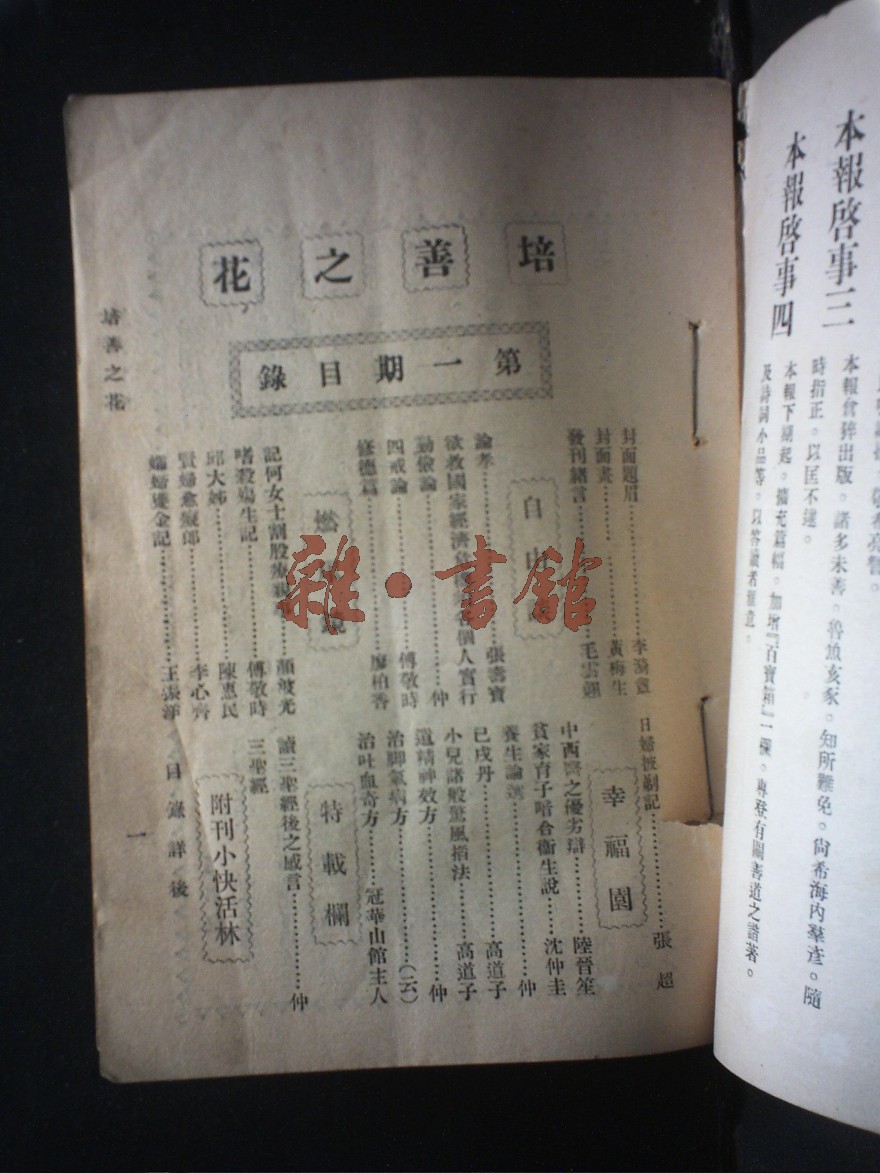 本報啓事三
本報倉猝出版。諸多未善。魯魚亥豕。知所難免。尙希海內羣彥。隨
時指正。以匡不逮。
本報啓事四
本報下期起。擴充篇幅。加增『百寶箱』一欄。專登有關善道之諸著。
及詩詞小品等。以答讀者雅意。
培善之花
第一期目錄
封面題眉……李
封面畫……黃梅生
發刊緒言……毛雲
自由
論孝……張書寶
欲救國家經濟 個人實行
勤儉論……仲
四戒論……傅敬時
修德篇……廖柏香
燃
記何女士割股療親……顏坡光
嗜殺殤生記……傅敬時
邱大姊……陳惠民
賢婦愈癡郎……李心齊
孀婦變金記……王張
日婦披剃記……張超
幸福園
中西醫之優劣辯……陸晉笙
貧家育子暗合衞生說……沈仲圭
養生論……仲
巳戌丹……高道子
小兒諸般驚風指法……高道子
道精神效方……仲
治脚氣病方……(云)
治吐血奇方……冠華山館主人
特載欄
讀三聖經後之感言……仲
三聖經
附刊小快活林
目錄詳後
培善之花
一
雜·書館